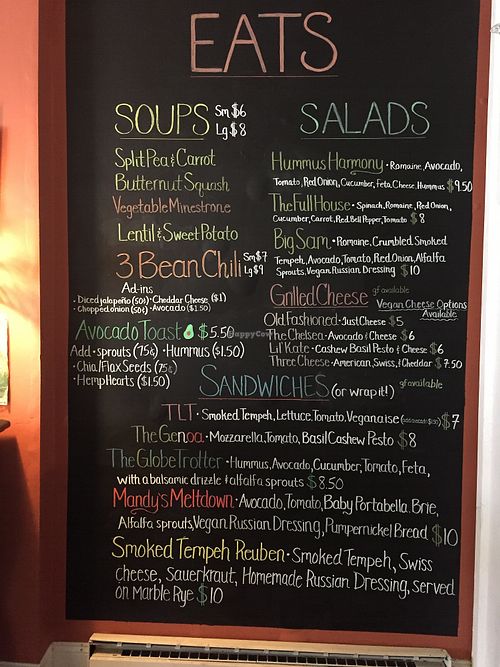 EATS
SOUPS Sm $6
Lg $8
Split Pea & Carrot
Butternut Squash
Vegetable Minestrone
Lentil & Sweet Potato
3 Bean Chili Sm $7
Lg $9
Ad-ins
· Diced jalapeño (50¢) · Cheddar Cheese ($1)
· Chopped onion (50¢) · Avocado ($1.50)
Avocado Toast $5.50
Add · sprouts (75¢) · Hummus ($1.50)
· Chia/Flax Seeds (75¢)
· Hemp Hearts ($1.50)
SALADS
Hummus Harmony · Romaine, Avocado,
Tomato, Red Onion, Cucumber, Feta Cheese, Hummus $9.50
The Full House · Spinach, Romaine, Red Onion,
Cucumber, Carrot, Red Bell Pepper, Tomato $8
Big Sam · Romaine, Crumbled Smoked
Tempeh, Avocado, Tomato, Red Onion, Alfalfa
Sprouts, Vegan Russian Dressing $10
Grilled Cheese gf available
Vegan Cheese Options
Available
Old Fashioned · Just Cheese $5
The Chelsea · Avocado & Cheese $6
Lil' Kate · Cashew Basil Pesto & Cheese $6
Three Cheese · American, Swiss, & Cheddar $7.50
SANDWICHES (or wrap it!) gf available
TLT · Smoked Tempeh, Lettuce, Tomato, Veganaise (add avocado $1.50) $7
The Genoa · Mozzarella, Tomato, Basil Cashew Pesto $8
The Globe Trotter · Hummus, Avocado, Cucumber, Tomato, Feta,
with a balsamic drizzle & alfalfa sprouts $8.50
Mandy's Meltdown · Avocado, Tomato, Baby Portabella, Brie,
Alfalfa sprouts, Vegan Russian Dressing, Pumpernickel Bread $10
Smoked Tempeh Reuben · Smoked Tempeh, Swiss
cheese, Sauerkraut, Homemade Russian Dressing, served
on Marble Rye $10